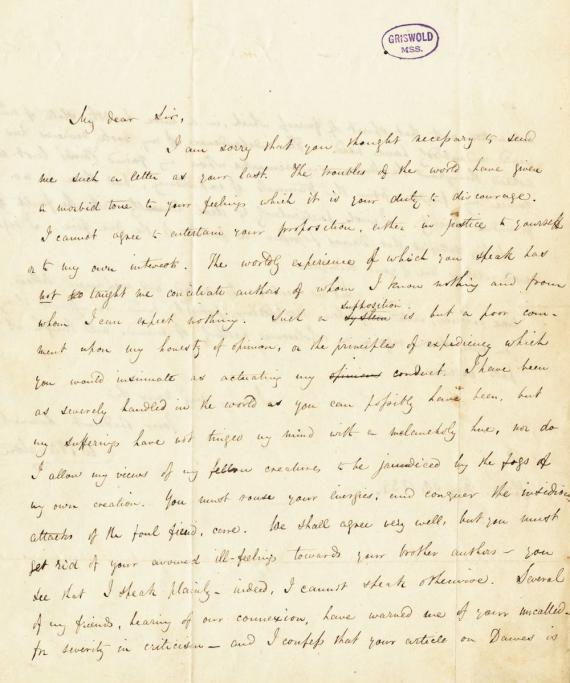 GRISWOLD
MSS.
My dear Sir,
I am sorry that you thought necessary to send
me such a letter as your last. The troubles of the world have given
a morbid tone to your feelings which it is your duty to discourage.
I cannot agree to entertain your proposition, either in justice to yourself
or to my own interests. The worldly experience of which you speak has
not so taught me conciliate authors of whom I know nothing and from
whom I can expect nothing. Such a system supposition is but a poor com-
ment upon my honesty of opinion, or the principles of expediency which
you would insinuate as actuating my opinions conduct. I have been
as severely handled in the world as you can possibly have been, but
my sufferings have not tinged my mind with a melancholy hue, nor do
I allow my views of my fellow creatures to be jaundiced by the fogs of
my own creation. You must rouse your energies, and conquer the insidious
attacks of the foul fiend, care. We shall agree very well, but you must
get rid of your avowed ill-feelings towards your brother authors – you
see that I speak plainly – indeed, I cannot speak otherwise. Several
of my friends, hearing of our connexion, have warned me of your uncalled-
for severity in criticism – and I confess that your article on Dawes is